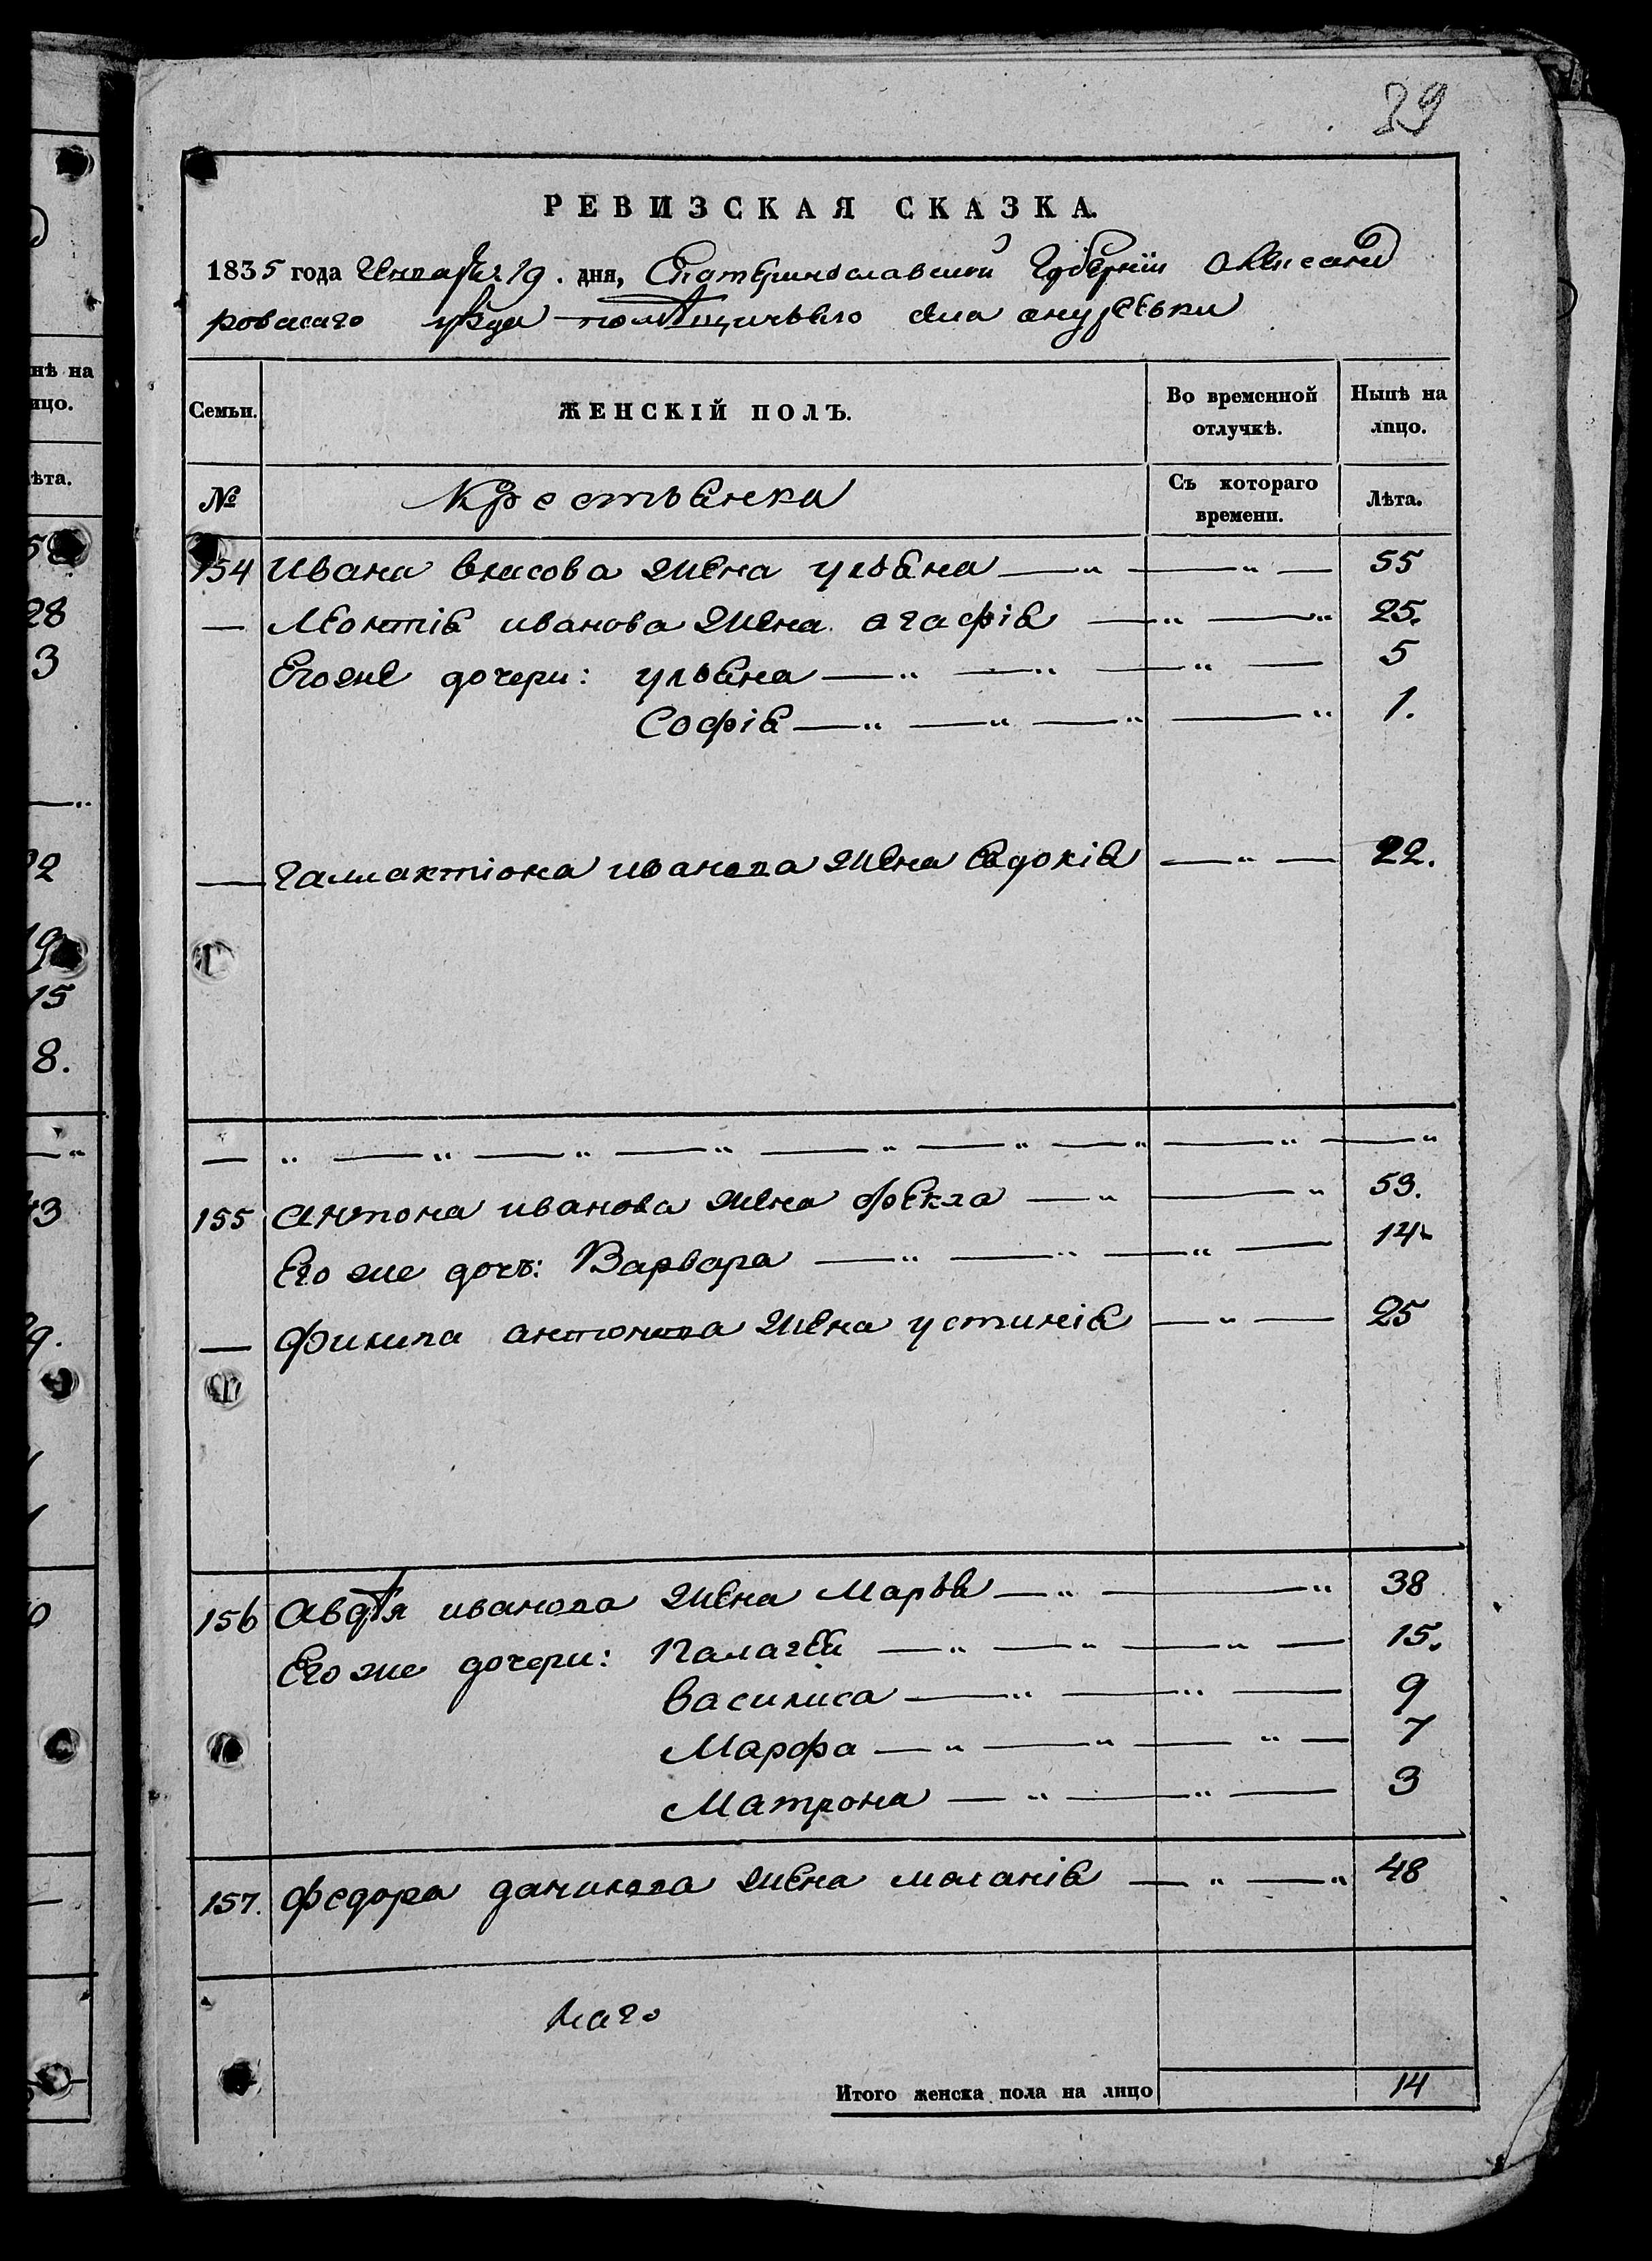 39
РЕВИЗСКАЯ СКАЗКА.
1835 года Генваря 19. дня, Екатеринославской Губерніи Александ
ровскаго уѣзда помѣщичьяго села
Семьи.
ЖЕНСКІЙ ПОЛЪ.
Во временной отлучкѣ.
Нынѣ на лицо.
№
Крестьянка
Съ котораго времени.
Лѣта.
154 Ивана власова жена ульяна — „ — „ — 55
— Леонтія иванова жена агафія — „ — „ 25.
Егоже дочери: ульяна — „ — „ — „ — 5
Софія — „ — „ — „ — „ 1.
— галлактіона иванова жена евдокія — „ — 22.
— „ — „ — „ — „ — „ — „ — „ — „ — „
155 антона иванова жена фекла — „ — „ 53.
Его же дочь: Варвара — „ — „ — „ — 14
— филипа антонова жена устинія — „ — 25
156 Авдѣя иванова жена Марья — „ — „ 38
Его же дочери: Палагея — „ — „ — „ — 15.
Василиса — „ — „ — 9
Марфа — „ — „ — „ — 7
Матрона — „ — „ — 3
157. федора данилова жена маланія — „ — „ 48
Итого женска пола на лицо 14
нѣ на
ицо.
ѣта.
28
3
15
8.